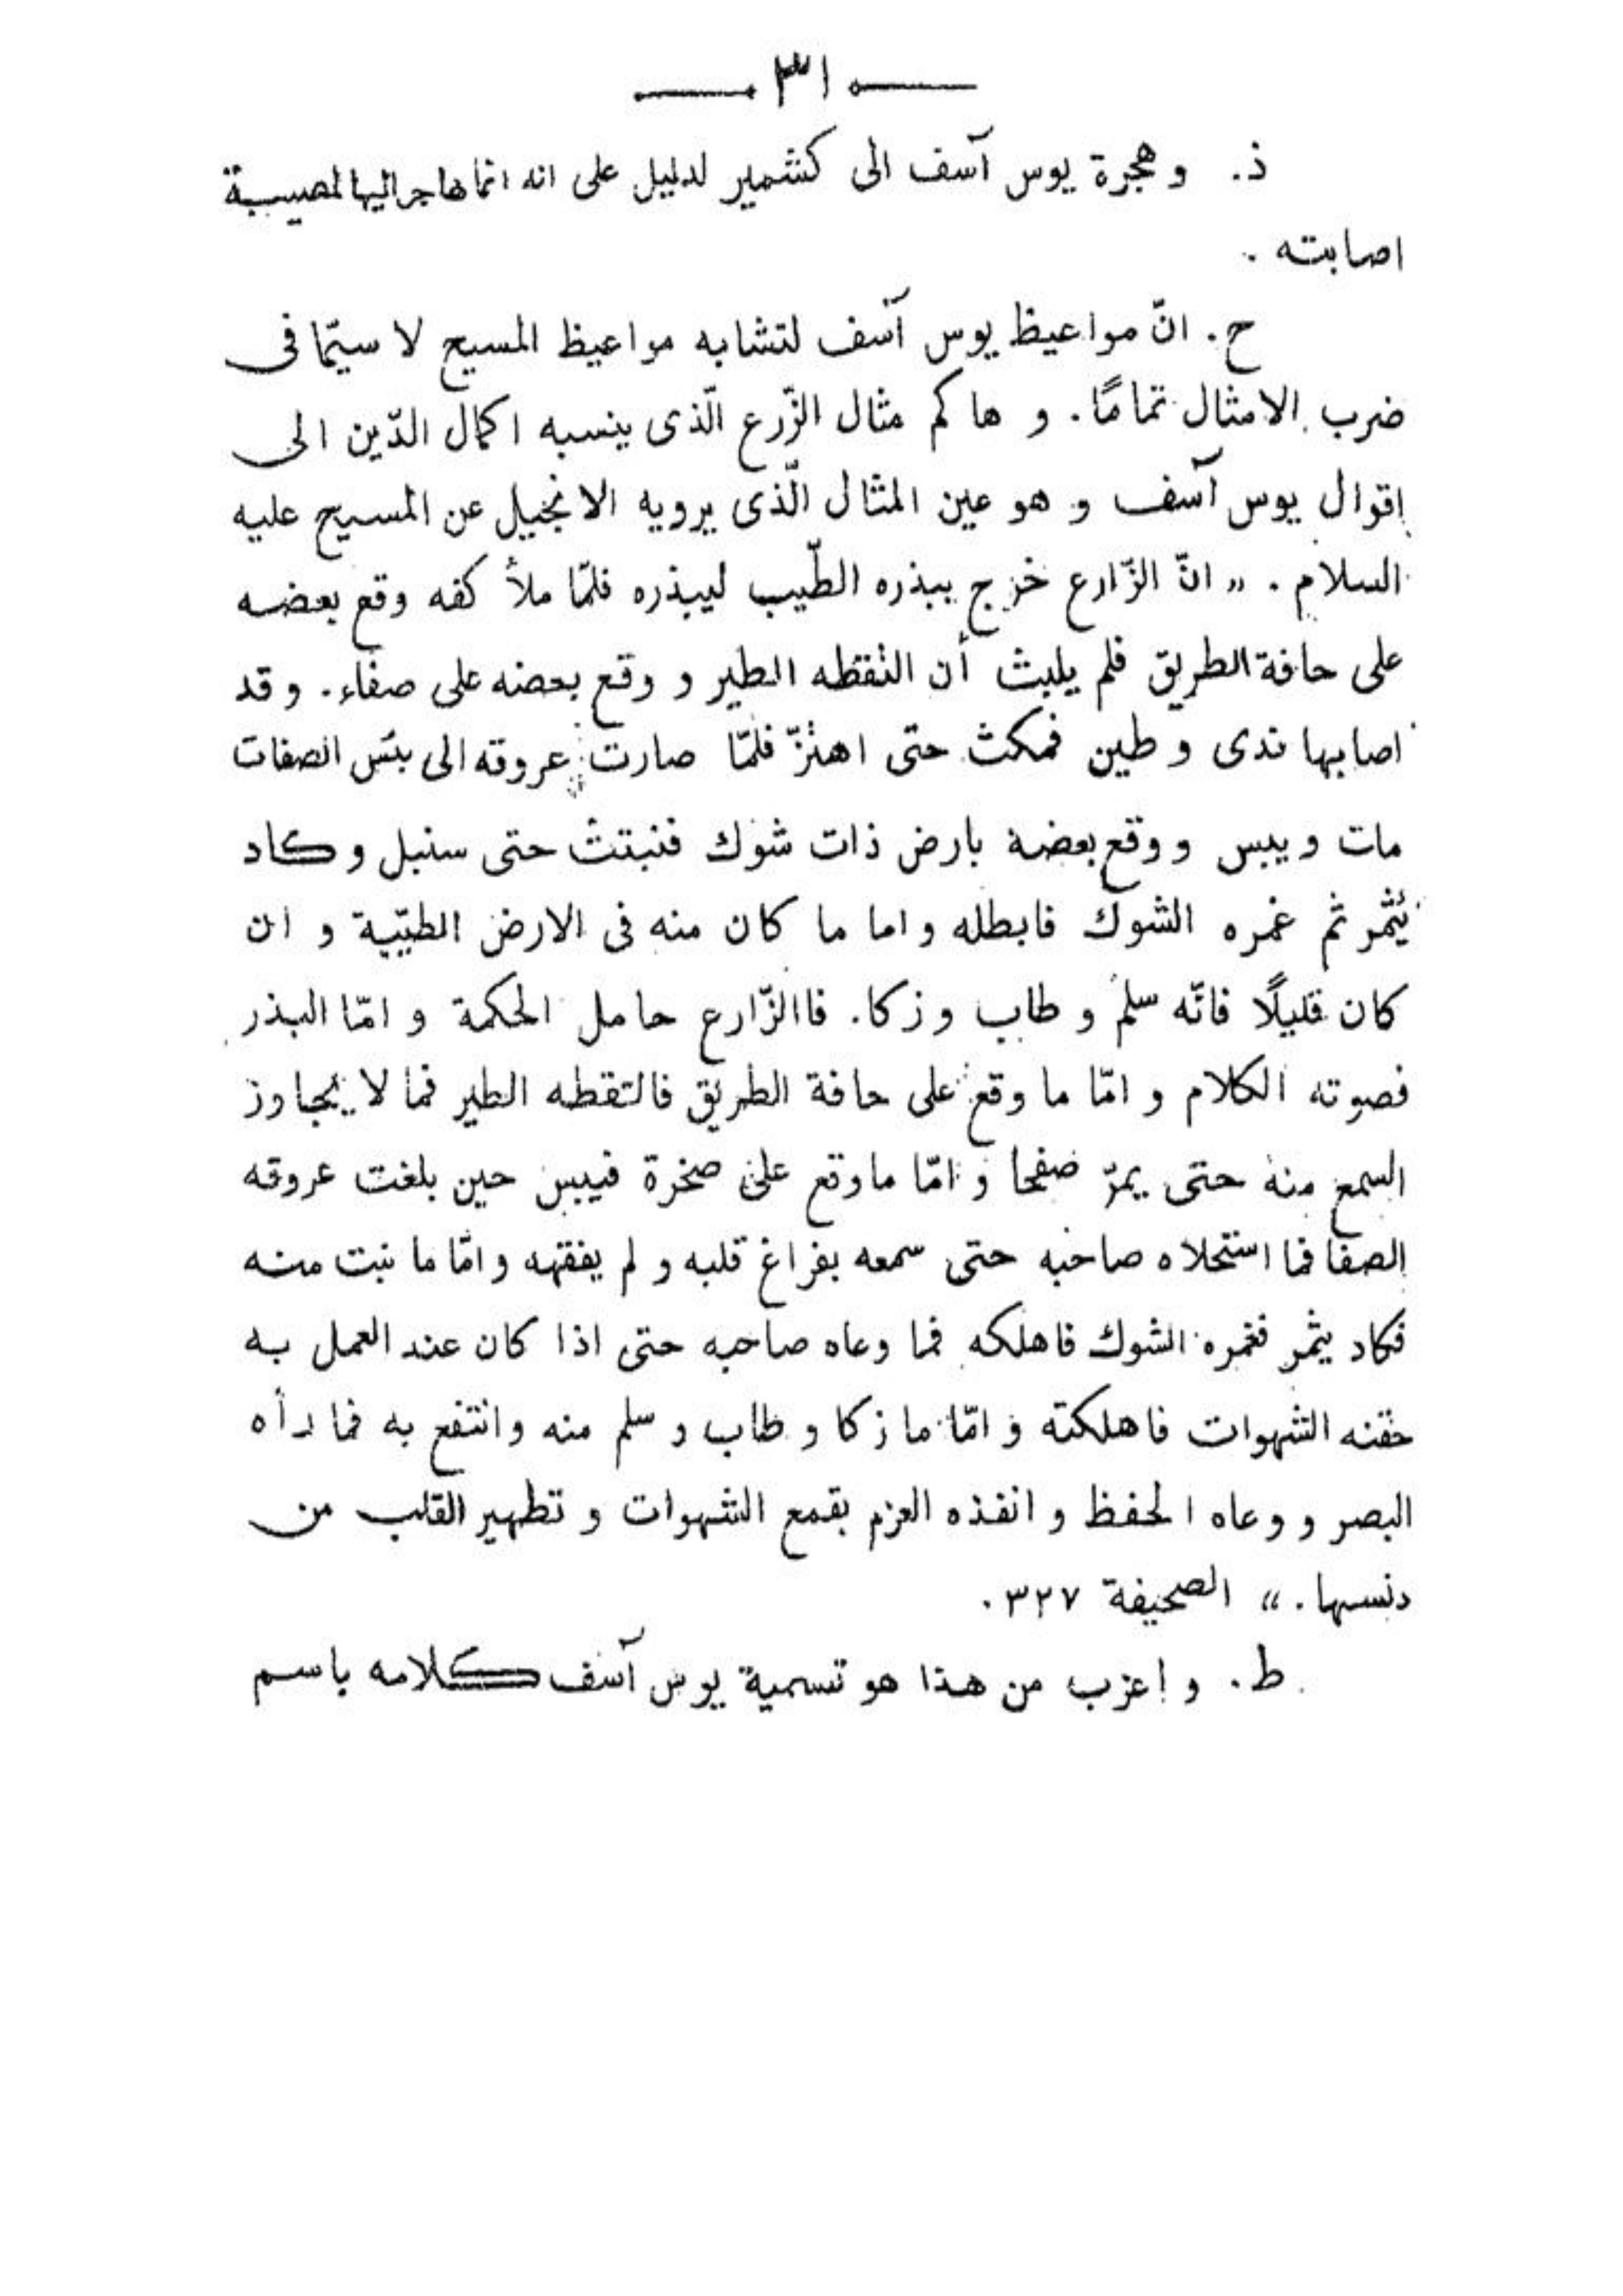 ٣١
ذ. و هجرة يوس آسف الى كشمير لدليل على انه انما هاجر اليها لمصيبة
اصابته .
ح. انّ مواعيظ يوس آسف لتشابه مواعيظ المسيح لا سيّما فى
ضرب الامثال تمامًا. و هاكم مثال الزّرع الّذى ينسبه اكمال الدّين الى
اقوال يوس آسف و هو عين المثال الّذى يرويه الانجيل عن المسيح عليه
السلام . « انّ الزّارع خرج ببذره الطّيب ليبذره فلمّا ملأ كفه وقع بعضه
على حافة الطريق فلم يلبث أن التقطه الطير و وقع بعضه على صفاء. و قد
اصابها ندى و طين فمكث حتى اهتزّ فلمّا صارت عروقه الى يبس الصفات
مات و يبس و وقع بعضه بارض ذات شوك فنبتت حتى سنبل و كاد
يُثمر ثم غمره الشوك فابطله و اما ما كان منه فى الارض الطيّبة و ان
كان قليلًا فانّه سلم و طاب و زكا. فاالزّارع حامل الحكمة و امّا البذر
فصوته الكلام و امّا ما وقع على حافة الطريق فالتقطه الطير فما لا يُجاوز
السمع منه حتى يمرّ صفحا و امّا ما وقع على صخرة فيبس حين بلغت عروقه
الصفا فما استحلاه صاحبه حتى سمعه بفراغ قلبه و لم يفقهه و امّا ما نبت منه
فكاد يثمر فغمره الشوك فاهلكه فما وعاه صاحبه حتى اذا كان عند العمل به
حقنه الشهوات فاهلكته و امّا ما زكا و طاب و سلم منه و انتفع به فما رأه
البصر و وعاه الحفظ و انفذه العزم بقمع الشهوات و تطهير القلب من
دنسها. » الصحيفة ٣٢٧.
ط. و اعزب من هذا هو تسمية يوس آسف كلامه باسم